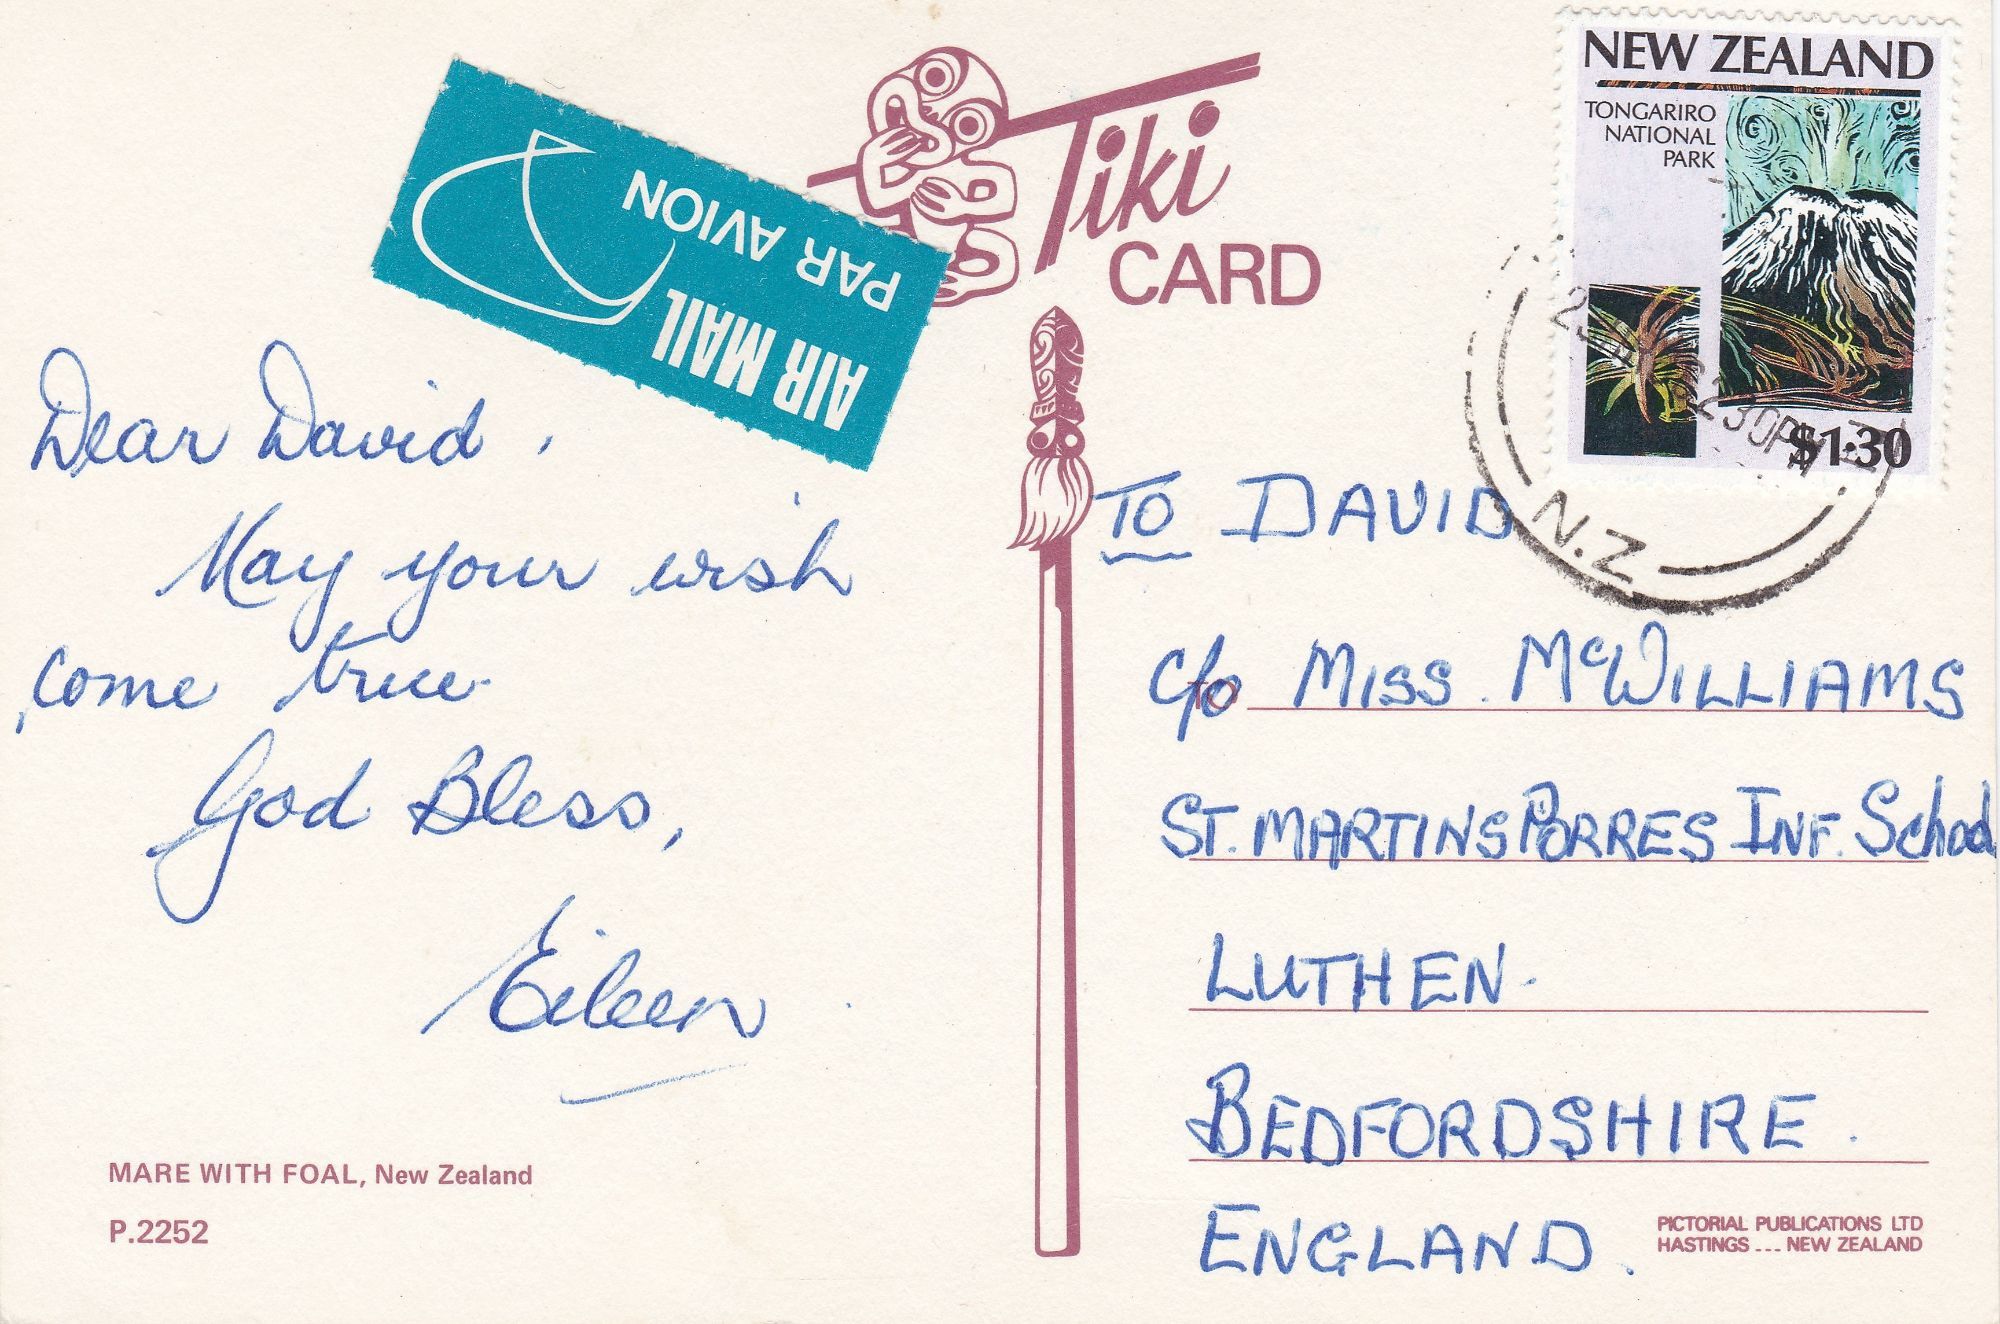 AIR MAIL
PAR AVION
Tiki
CARD
NEW ZEALAND
TONGARIRO
NATIONAL
PARK
$1.30
230PM
N.Z
Dear David,
May your wish
come true.
God Bless,
Eileen
MARE WITH FOAL, New Zealand
P.2252
TO DAVID
TO
c/o MISS. McWILLIAMS
ST. MARTINS PORRES INF. School
LUTHEN.
BEDFORDSHIRE.
ENGLAND.
PICTORIAL PUBLICATIONS LTD
HASTINGS ... NEW ZEALAND